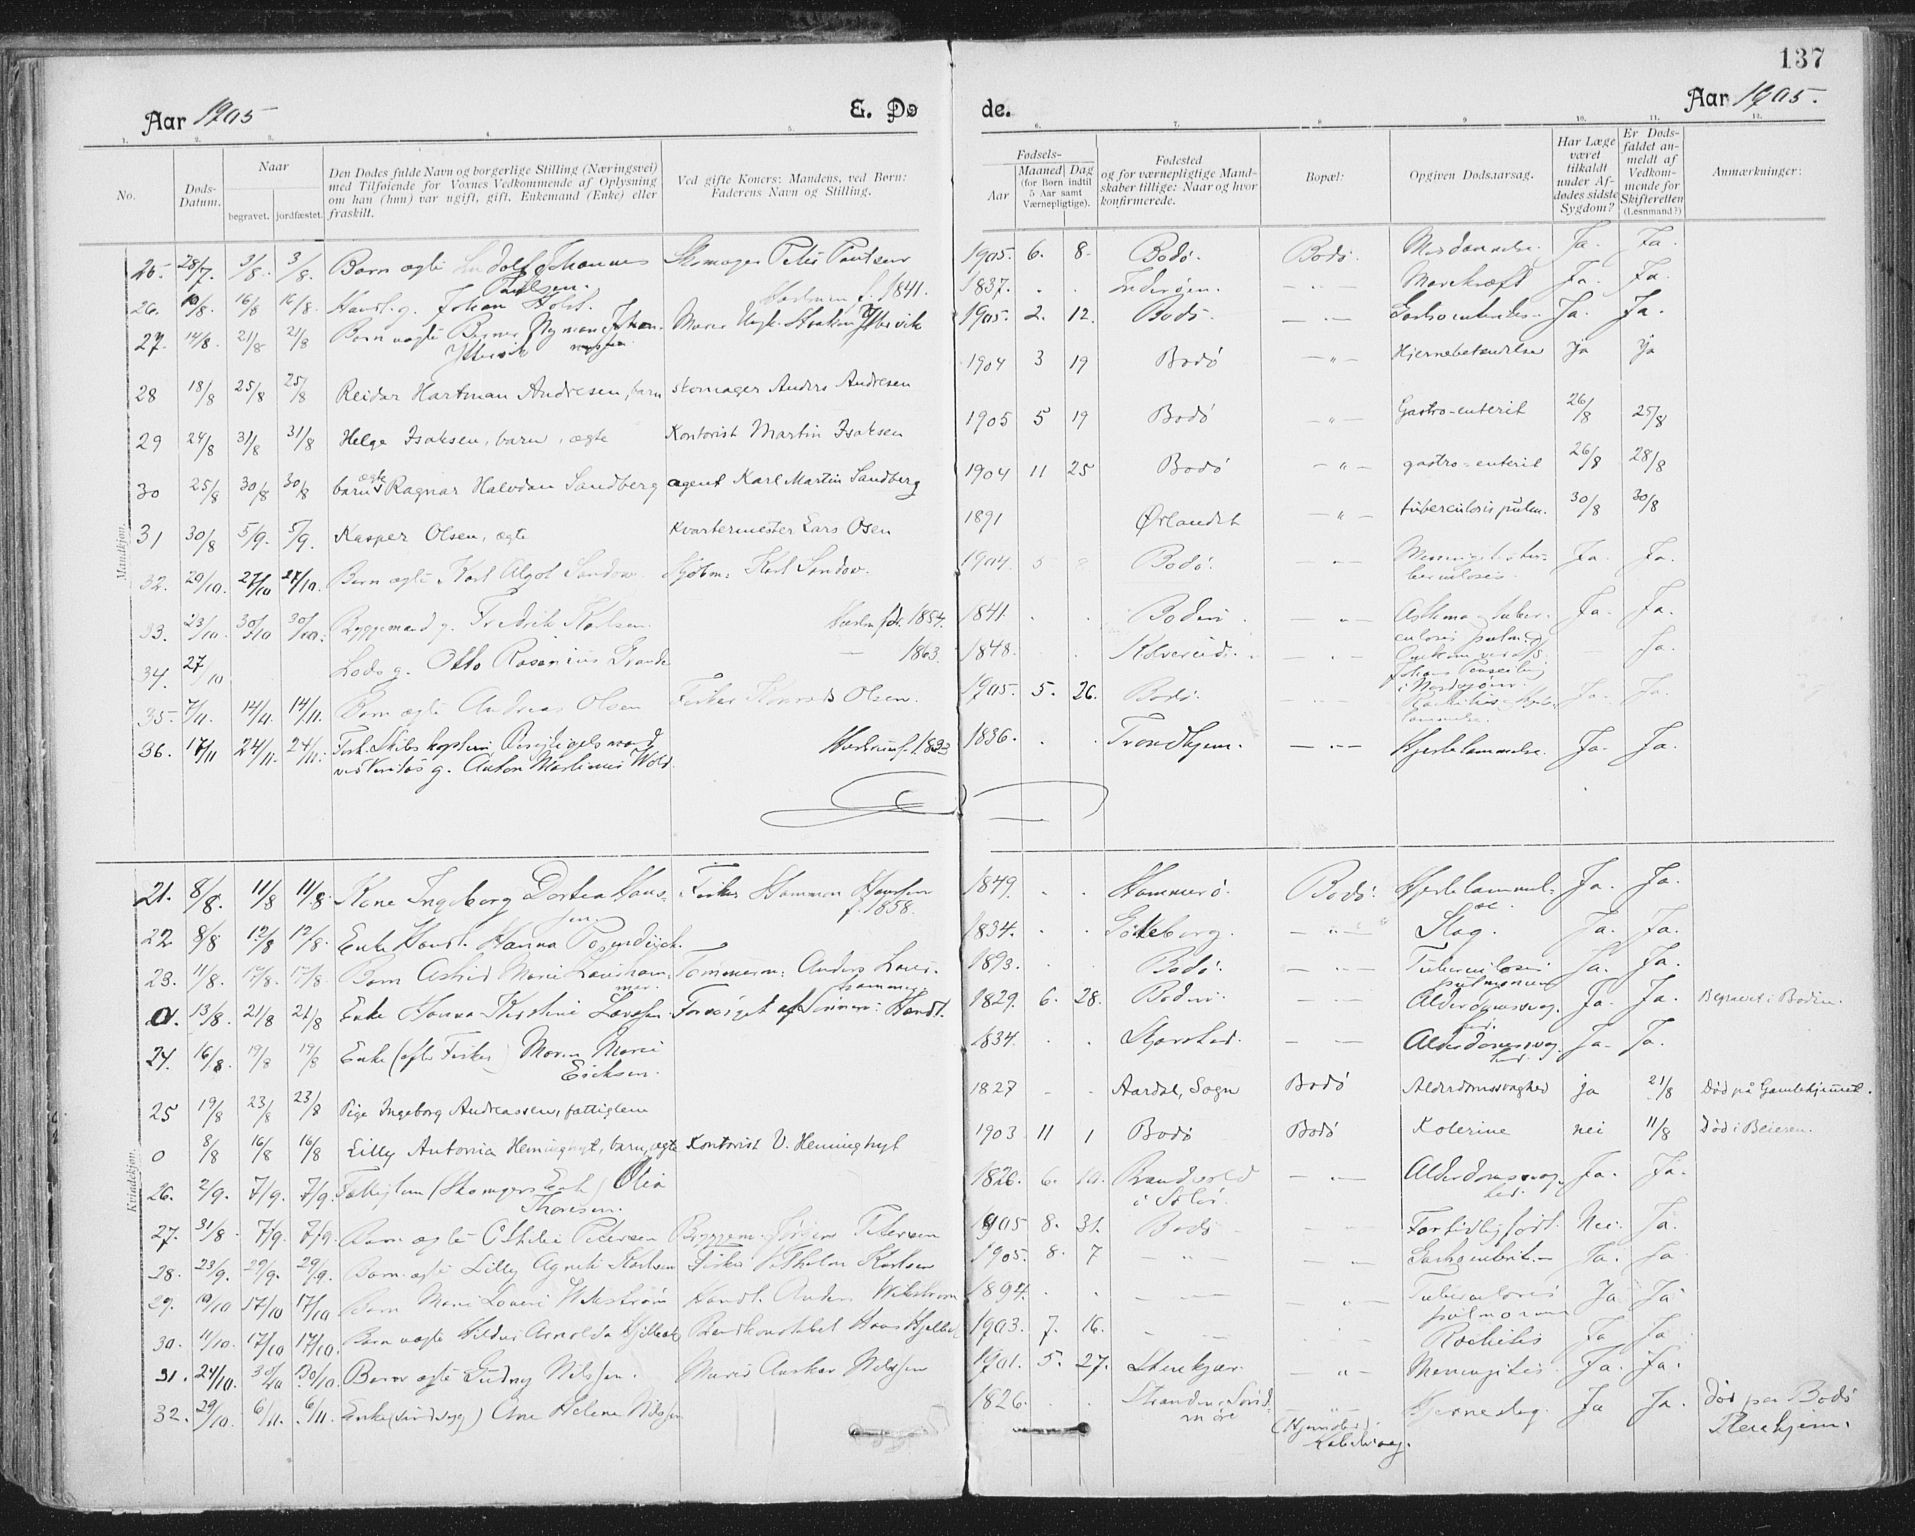 137
Aar 1905
E. Dø
de.
Aar 1905.
1. 2. 3. 4. 5. 6. 7. 8 9 10. 11. 12.
No.
Døds-Datum.
Naar
begravet. jordfæstet.
Den Dødes fulde Navn og borgerlige Stilling (Næringsvei)
med Tilføiende for Voxnes Vedkommende af Oplysning
om han (hun) var ugift, gift, Enkemand (Enke) eller
fraskilt.
Ved gifte Koners: Mandens, ved Børn:
Faderens Navn og Stilling.
Fødsels-
Aar
Maaned Dag
(for Børn indtil
5 Aar samt
Værnepligtige).
Fødested
og for værnepligtige Mand-
skaber tillige: Naar og hvor
konfirmerede.
Bopæl:
Opgiven Dødsaarsag.
Har Læge
været
tilkaldt
under Af-
dødes sidste
Sygdom?
Er Døds-
faldet an-
meldt af
Vedkom-
mende for
Skifteretten
(Lensmand?)
Anmærkninger:
Mandkjøn.
25. 28/7. 3/8. 3/8. Barn ægte Ludolf Johannes Paulsen. Skomager Peter Paulsen 1905. 6. 8. Bodø. Bodø. Misdannelse. Ja. Ja.
26. 10/8. 16/8 16/8. Handl. g. Johan Holst. Hustrun f. 1841. 1837. . . Inderøen. — " — Marekræft Ja. Ja.
27. 14/8. 21/8 21/8 Barn uægte Berner Nyman Ytterviik Johannessen Haakon Ytterviik 1905. 2. 12. Bodø. — " — Gastroenterites. Ja. Ja.
28 18/8 25/8 25/8 Reidar Hartman Andresen, barn skomager Anders Andresen 1904 3 19 Bodø — " — Hjernebetændelse ja ja
29 24/8 31/8 31/8 Helge Isaksen, barn, ægte Kontorist Martin Isaksen 1905 5 19 Bodø — " — Gastro-enterit 26/8 25/8
30 25/8 30/8 30/8 barn ægte Ragnar Halvdan Sandberg agent Karl Martin Sandberg 1904 11 25 Bodø — " — gastro-enterit 26/8 28/8
31 30/8 5/9. 5/9. Kasper Olsen, ægte Kvartermester Lars Osen 1891 Ørlandet — " — tuberculosis pulm. 30/8 30/8
32. 20/10. 27/10 27/10. Barn ægte Karl Algot Sandow. Kjøbm: Karl Sandow. 1904. 5 Bodø. — " — Meningit tuberculosis. Ja. Ja.
33. 23/10. 30/10 30/10. Byggemand g. Fredrik Karlsen. Hustru fdt. 1854. 1841. . . Bodin. — " — Asthma tuberculosis pulm. Ja. Ja.
34. 27/10 Lods g. Otto Rosenius Grande — 1863. 1848. . . Kolvereid. — " — Omkom i Nordsjøen Ja.
35. 7/11. 14/11. 14/11. Barn ægte Andreas Olsen Fisker Olsen. 1905. 5. 26. Bodø. Rachitis lammelse. Ja. Ja.
36. 17/11 24/11. 24/11. Forh. Skibskaptein, Besigtigelsmand ved Veritas g. Anton Martinius Wold. Hustrun f. 1833 1836. . . Trondhjem. — " — Hjertelammelse. Ja. Ja.
Kvindekjøn.
21. 8/8. 11/8 11/8 Kone Ingeborg Dortea Hanssen Fisker Hanssen f. 1858. 1849. . . Hammerø. Bodø. Hjertelammelse. Ja. Ja.
22 8/8 12/8 12/8. Enke Handl. Hanna Rosendijck. 1834. . . Göteborg. — " — Slag. Ja. Ja.
23. 11/8. 17/8. 17/8. Barn Astrid Marie Laurhammer. Tømmerm: Anders Laurhammer 1893. . . Bodø. — " — Tuberculosis pulmonum Ja. Ja.
0. 13/8. 21/8 21/8 Enke Hanna Kirstine Larssen Forsørget af Sønnen: Handl. 1829. 6. 28. Bodin. — " — Alderdomssvaghed. Ja. Ja. Begravet i Bodin.
24. 16/8. 19/8 19/8 Enke (efter Fisker) Maren Marie Ericksen. 1834. . . Skjerstad. — — Alderdomssvaghed. Ja. Ja.
25 19/8 23/8 23/8 Pige Ingeborg Andreassen, fattiglem 1827 - . Aardal, Sogn Bodø Alderdomssvaghed ja 21/8 Død på Gamlehjemmet.
0 8/8 16/8 16/8 Lilly Antonia Heminghyt, barn, ægte Kontorist V. Heminghyt 1903 11 1 Bodø Bodø Kolerine nei 11/8 Død i Beieren.
26. 2/9. 7/9. 7/9. Fattiglem (Skomagers Enke) Olea Thoresen. 1826. 6. 10. Brandvold i Solør. — " — Alderdomssvaghed. Ja. Ja.
27. 31/8 7/9. 7/9. Barn ægte Othilie Petersen Byggem. Jørgen Petersen 1905 8. 31. Bodø — For tidlig født. Nei. Ja.
28. 23/9. 29/9. 29/9. Barn ægte Lilly Agnete Karlsen Fisker Vilhelm Karlsen 1905. 8. 7 — " — Gastroenterit. Ja. Ja
29. 10/10 17/10 17/10 Barn Marie Lovise Wikstrøm Handl. Anders Wikstrøm 1894. . . — " — Tuberculosis pulmonum Ja. Ja.
30. 11/10. 17/10 17/10. Barn uægte Hildur Arnolda Hjelbak Hans Hjelbak 1903. 7. 16. — " — Rachitis Ja Ja
31. 24/10. 30/10 30/10. Barn ægte Gudny Nilssen. Murer Anskar Nilssen 1901. 5. 27. Stenkjær. — " — Meningitis. Ja. Ja.
32. 29/10. 6/11. 6/11. Enke (sindssyg) Ane Helene Nilssen 1826. . . Stranden, Søndmøre (Hjemsted) Kabelvaag. Hjerneslag. Ja Ja. Død paa Bodø Pleiehjem.